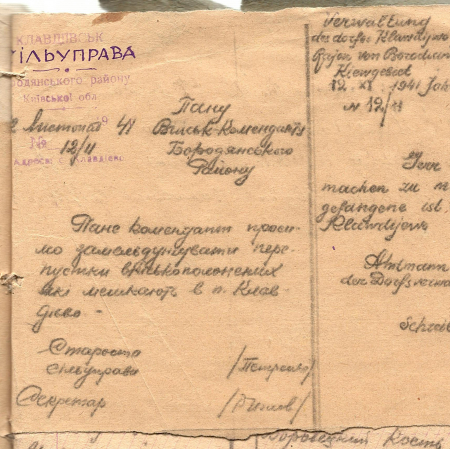 КЛАВДІЇВСЬК
СІЛЬУПРАВА
Бородянського району
Київської обл.
12 Листопад 41
№ 12/11
Адреса: с. Клавдієві
Пану
Військ Коменданту
Бородянського
Району
Пане комендант проси-
мо замельдувати пере-
пустки військополонених
які мешкають в п. Клав-
дієво.
Староста
сільуправи /Петренко/
Секретар
Verwaltung
des dorfes Klawdijewo
Gajon von Borodian
Kiewgebiet
12. XI. 1941 Jah
N 12/11
Herr
machen zu m
gefangene ist,
Klawdijewo
Ahtmann
der Dorfsverwa
Schreib
Кость